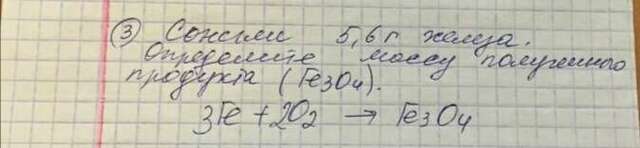 ③ Сожгли 5,6 г железа.
Определите массу полученного
продукта (Fe3O4).
3Fe + 2O2 → Fe3O4